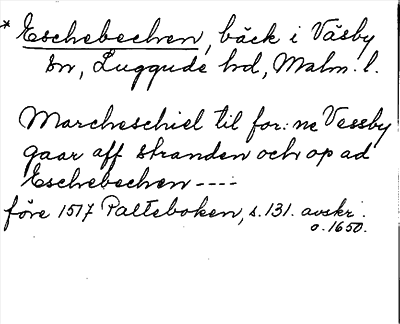 * Eschebechen, bäck i Väsby
sn, Luggude hd, Malm. l.
Marcheschiel til for: ne Vessby
gaar aff stranden och op ad
Eschebechen ----
före 1517 Palteboken, s. 131. avskr.
o. 1650.